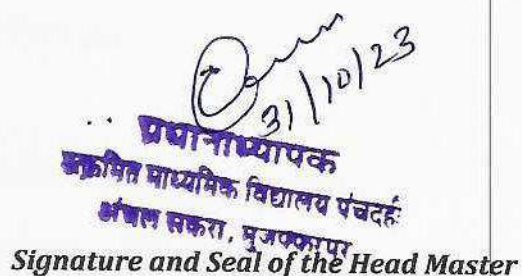 31/10/23
प्रधानाध्यापक
उत्क्रमित माध्यमिक विद्यालय पंचदहः
अंचल सकरा, मुजफ्फरपुर
Signature and Seal of the Head Master